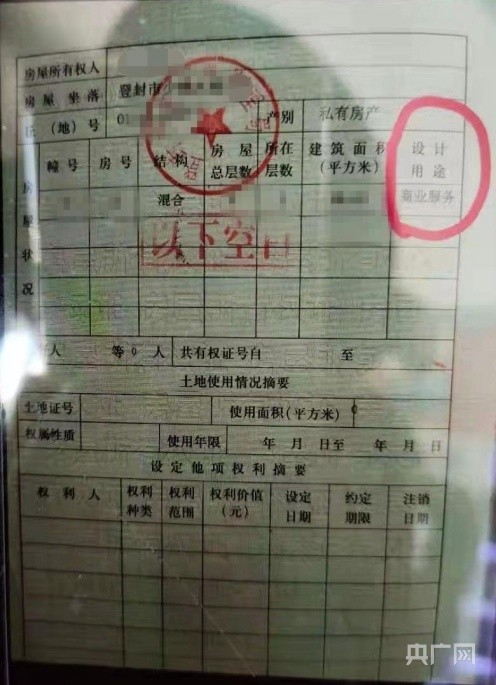 房屋所有权人
房屋坐落 登封市
(地)号 01 产别 私有房产
房屋状况
幢号 房号 结构 房屋总层数 所在层数 建筑面积(平方米) 设计用途
混合 商业服务
以下空白
人 等0人 共有权证号自 至
土地使用情况摘要
土地证号 使用面积(平方米) 0
权属性质 使用年限 年 月 日至 年 月 日
设定他项权利摘要
权利人 权利种类 权利范围 权利价值(元) 设定日期 约定期限 注销日期
央广网